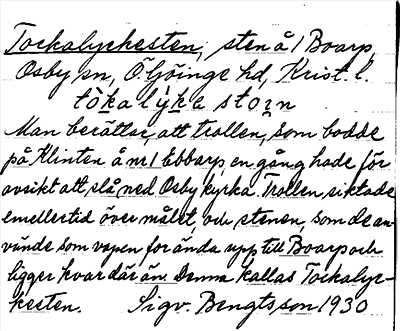 Tockalyckesten, sten å 1 Boarp,
Osby sn, Ö. Göinge hd, Krist. l.
tòkalýka stoɪn
Man berättar, att trollen, som bodde
på Klinten å m1 Ebbarp en gång hade för
avsikt att slå ned Osby kyrka. Trollen siktade
emellertid över målet, och stenen, som de an-
vände som vapen for ända upp till Boarp och
ligger kvar där än. Denna kallas Tockalyc-
kesten. Sigv. Bengtsson 1930